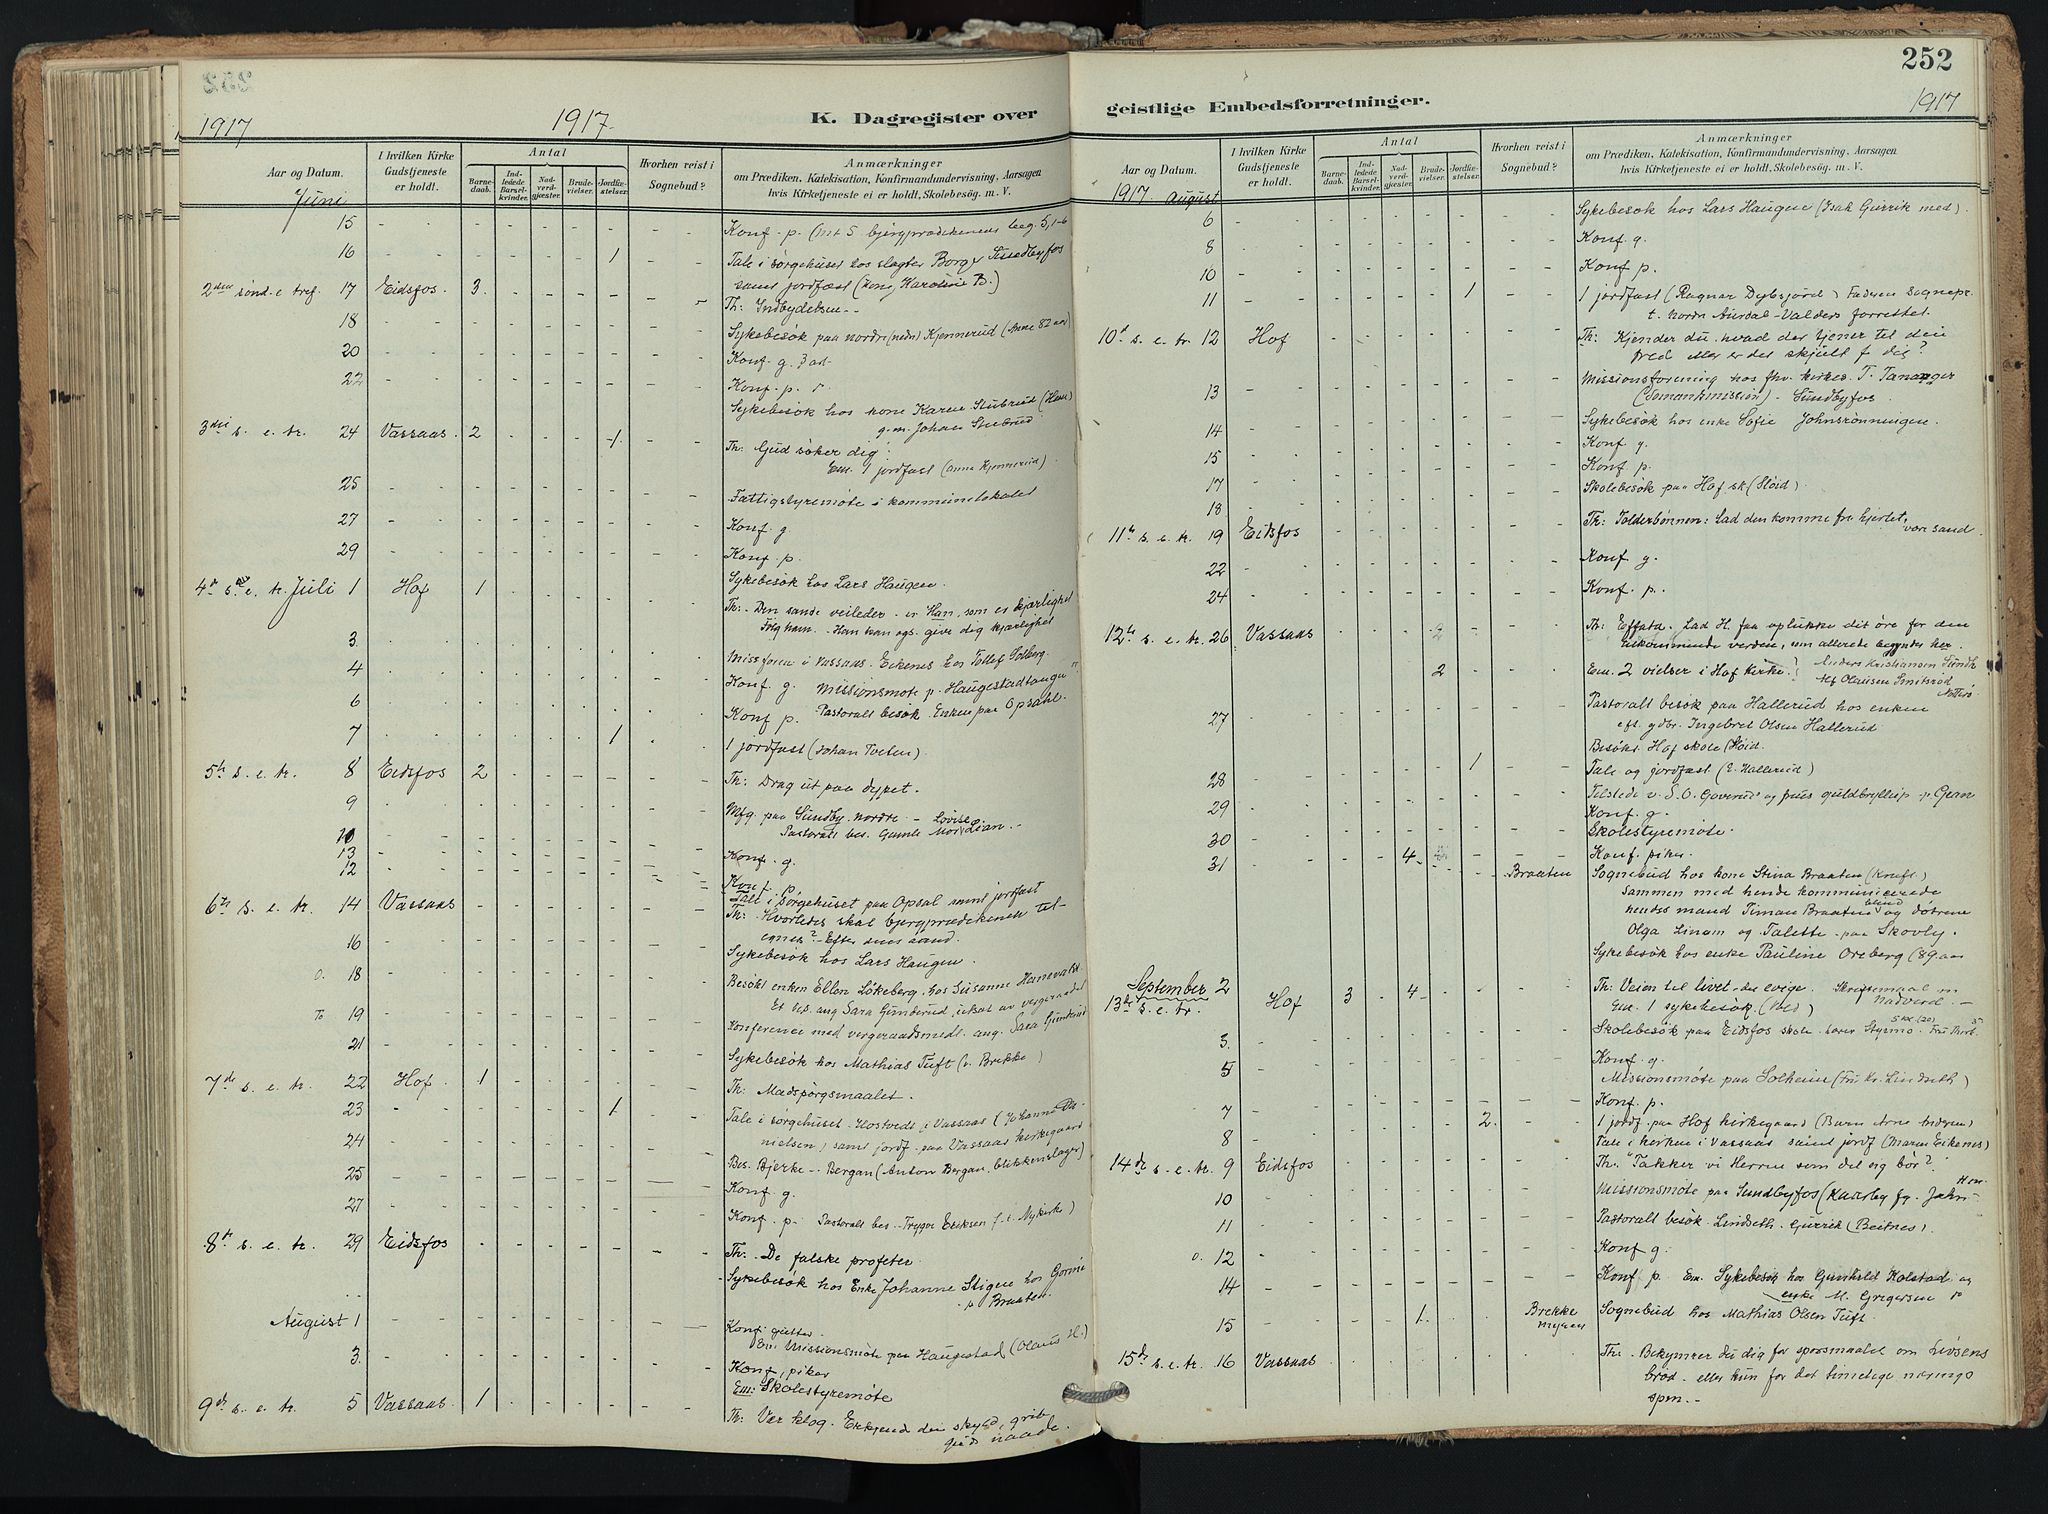 252
1917
1917
K. Dagregister over
geistlige Embedsforretninger.
1917
Aar og Datum.
I hvilken Kirke Gudstjeneste er holdt.
Antal
Barnedaab.
Indledede Barselkvinder.
Nadverdgjester.
Brudevielser.
Jordfæstelser.
Hvorhen reist i Sognebud?
Anmærkninger
om Prædiken, Katekisation, Konfirmandundervisning, Aarsagen
hvis Kirketjeneste ei er holdt, Skolebesøg. m. V.
Juni
15 Konf. p. (Mt 5 bjergprædikenens 5, 1-6
16 1 Tale i sørgehuset hos slagter Borge
2den sønd. e. tref. 17 Eidsfos. 3. samt jordfæst (kone Karoline B.)
Th: Indbydelsen --
18 Sykebesøk paa nordre (nedre) Kjennerud (Anne 82 aar)
20 Konf. g.
22 Konf. p.
Sykebesøk hos kone Karen Stubrud
g. m. Johan Stubrud
3die s. e. tr. 24 Vassaas. 2 1. Th: Gud søker dig!
Em. 1 jordfæst (Anna Kjennerud).
25 Fattigstyremøte i kommunelokalet
27 Konf. g
29 Konf. p.
Sykebesøk hos Lars Haugen.
4de s. e. tr. Juli 1 Hof 1 Th: Den sande veileder er Han, som er kjærlighet
Følg ham. Han kan ogs. give dig kjærlighet
3. Missforen i Vassaas. Eikenes hos Tollef Solberg.
4 Konf. g. Missionsmøte p. Haugestadtangen
6 Konf p. Pastoralt besøk. Enken paa Opsahl.
7 1 1 jordfæst (Johan Tveten).
5te s. e. tr. 8 Eidsfos 2 Th: Drag ut paa dypet.
9 Mfg. paa Sundby nordre - Lovise
Pastoralt bes. Gamle
10 Konf. g.
13
12 Konf p
Tale i sørgehuset paa Opsal samt jordfæst
6te s. e. tr. 14 Vassaas Th: Hvorledes skal bjergprædikenen til-
egnes? - Efter dens aand.
16 Sykebesøk hos Lars Haugen.
o. 18 Besøkt enken Ellen Løkeberg, hos Susanne Hanevold
ang Sara Gunderud, utsat av vergeraadet
To 19 Konference med vergeraadsmedl. ang. Sara Gunderud
21 Sykebesøk hos Mathias Tuft (v. Brekke)
7de s. e. tr. 22 Hof. 1 Th: Madspørgsmaalet.
23 1. Tale i sørgehuset Kostvedt i Vassaas (Johanne Da-
nielsen) samt jordf. paa Vassaas kirkegaard
24 Bes. Bjerke - Bergan (Anton Bergan, blikkenslager)
25 Konf. g.
27 Konf. p. Pastoralt bes. Trygve Eriksen (t. Nykirke)
8de s. e. tr. 29 Eidsfos Th: De falske profeter
Sykebesøk hos Enke Johanne Stigen hos
p. Braaten.
August 1 Konf: gutter.
Em: Missionsmøte paa Haugestad (Olaus H.)
3. Konf, piker
Em: Skolestyremøte
9de s. e. tr. 5 Vassaas 1 Th: Vær klog. Erkjend din skyld, grib
Guds naade.
Aar og Datum.
I hvilken Kirke Gudstjeneste er holdt.
Antal
Barnedaab.
Indledede Barselkvinder.
Nadverdgjester.
Brudevielser.
Jordfæstelser.
Hvorhen reist i Sognebud?
Anmærkninger
om Prædiken, Katekisation, Konfirmandundervisning, Aarsagen
hvis Kirketjeneste ei er holdt, Skolebesøg. m. V.
1917. August
6 Sykebesøk hos Lars Haugen (Isak Gurrik med).
8 Konf. g.
10 Konf p.
11 1 1 jordfæst (Ragnar Dybsjord) Faderen Sognepr.
t. Nordn Aurdal - Valders forrettet.
10de s. e. tr. 12 Hof Th: Kjender du, hvad der tjener til din
fred eller er det skjult f dig?
13 Missionsforening hos fhv. kirkes. T. Tananger
(Sømandsmission) - Sundbyfos
14 Sykebesøk hos enke Sofie Johnsrønningen.
15 Konf g.
17 Konf p.
18 Skolebesøk paa Hof sk (Sløid).
11te s. e. tr. 19 Eidsfos Th: Tolderbønnen: Lad den komme fra hjertet,
være sand.
22 Konf g.
24 Konf. p.
12te s. e. tr. 26 Vassaas 2 Th: Effata. Lad H. faa oplukke dit øre for den
tilkommende verden, som allerede begyndes her.
2 Em. 2 vielser i Hof kirke. Anders Kristiansen
Alf Olausen Smitsrød
Nøtterø
27 Pastoralt besøk paa Hallerud hos enken
eft. gdbr. Ingebret Olsen Hallerud
Besøkt Hof skole Sløid.
28 1 Tale og jordfæst (I. Hallerud)
29 Tilstede v. S. O. Gaverud og frues guldbryllup p Grean
Konf. g.
30 Skolestyremøte.
31 4 Konf. piker.
Braaten Sognebud hos kone Stina Braaten (Kræft)
Sammen med hende kommunicerede
hendes mand Timan Braaten blind og døtrene
Olga Linum og Talette paa Skovly.
Sykebesøk hos enke Pauline Oreberg (89 aar
September 2
13de s. e. tr. Hof 3 4 Th: Veien til livet - det evige. Skriftemaal m
Nadverd. -
Em. 1 sykebesøk
3. Skolebesøk paa Eidsfos skole. Lærer Styrmo. Fru
5 Konf g.
Missionsmøte paa Solheim (Fru Kr. Lindseth)
7 Konf. p.
8 2. 1 jordf. paa Hof kirkegaard (Barn Arne Andersen)
Tale i kirken i Vassaas samt jordf (Maren Eikenes)
14de s. e. tr. 9 Eidsfos Th: "Takker vi Herren som det sig bør?"
10 Missionsmøte paa Sundbyfos
11 Pastoralt besøk Lindseth. Gurrik (Beitnes).
o. 12 Konf g.
14 Konf p. Em. Sykebesøk hos Gunhild Kolstad og
enke M. Gregersen
15 1. Brekke myren Sognebud hos Mathias Olsen Tuft.
15de s. e. tr. 16 Vassaas Th: Bekymrer du dig for spørsmaalet om Livsens
brød - eller kun for det timelige nærings
spm. -